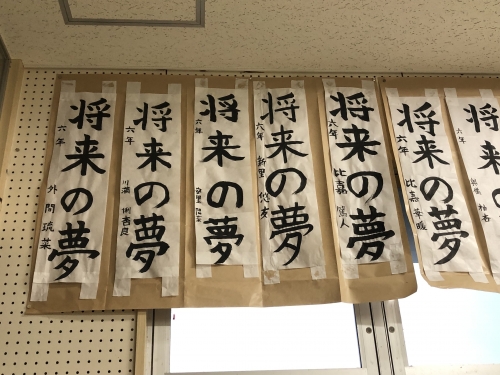 将来の夢
六年 外間琉菜
将来の夢
六年 川満
将来の夢
六年
将来の夢
六年 新里
将来の夢
六年 比嘉 篤人
将来の夢
六年 比嘉
将来の夢
六年